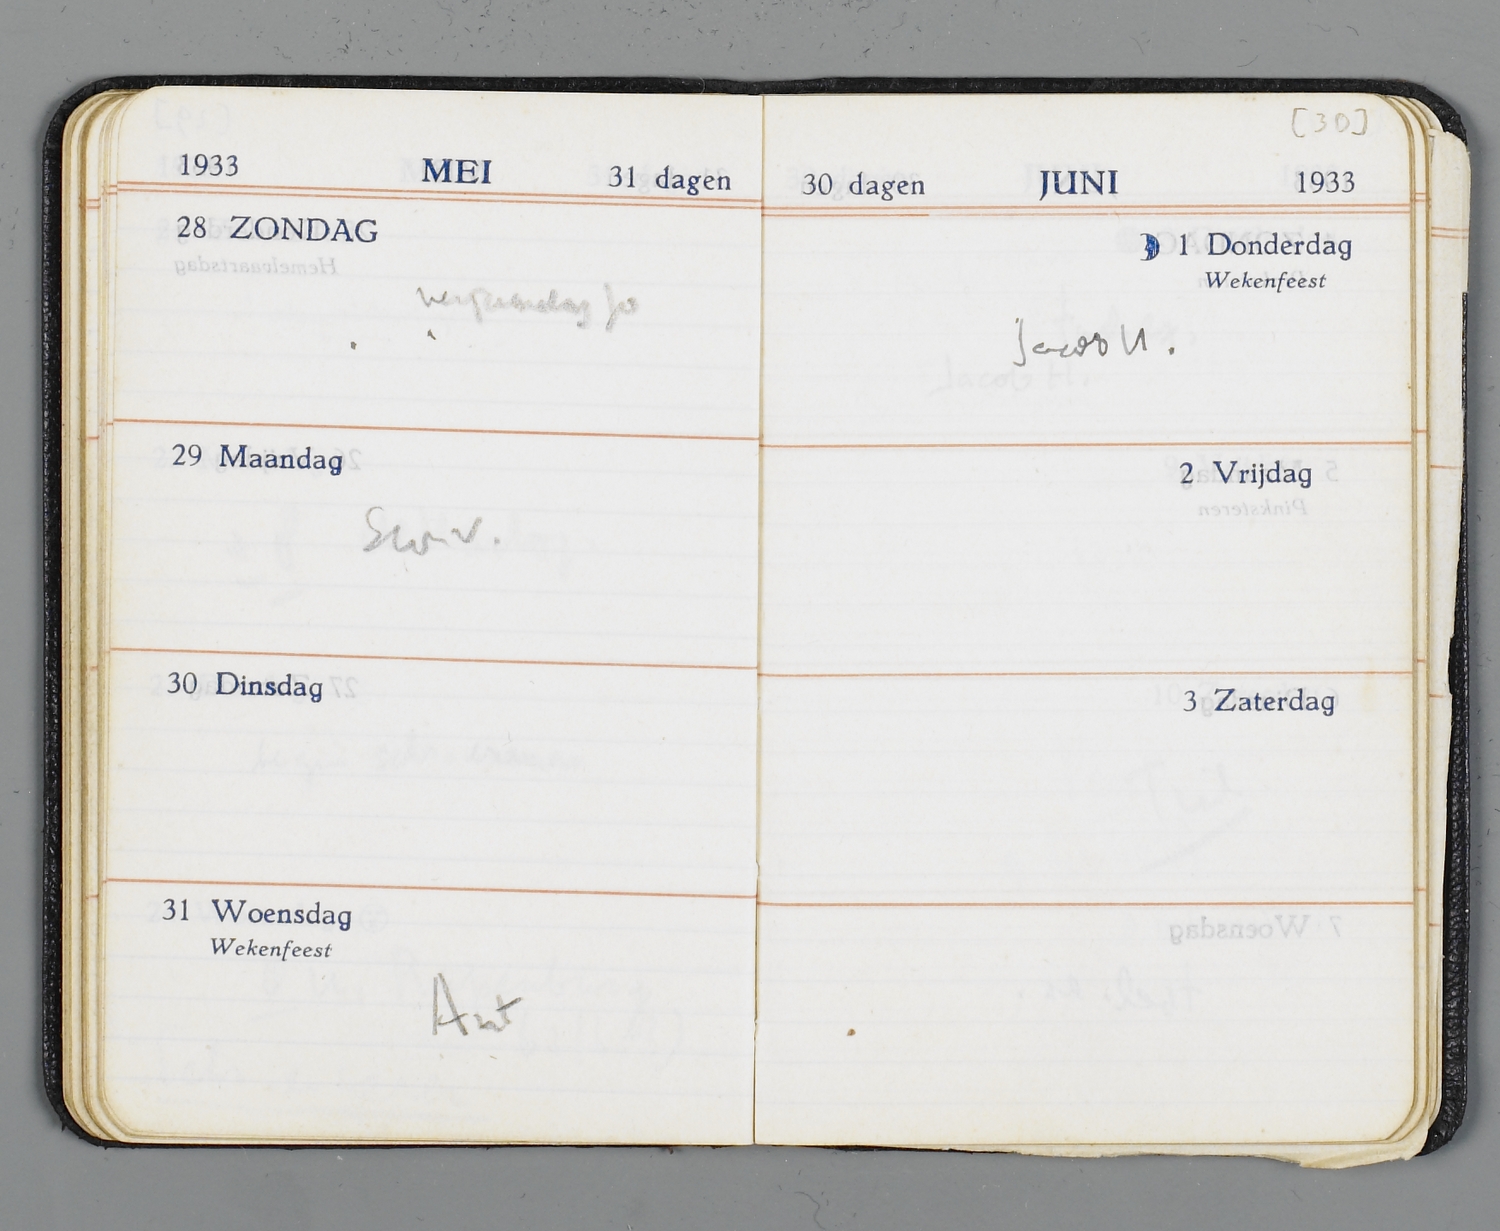 1933 MEI 31 dagen
28 ZONDAG
verjaardag Jo
29 Maandag
30 Dinsdag
31 Woensdag
Wekenfeest
[30]
30 dagen JUNI 1933
1 Donderdag
Wekenfeest
Jacob H.
2 Vrijdag
3 Zaterdag